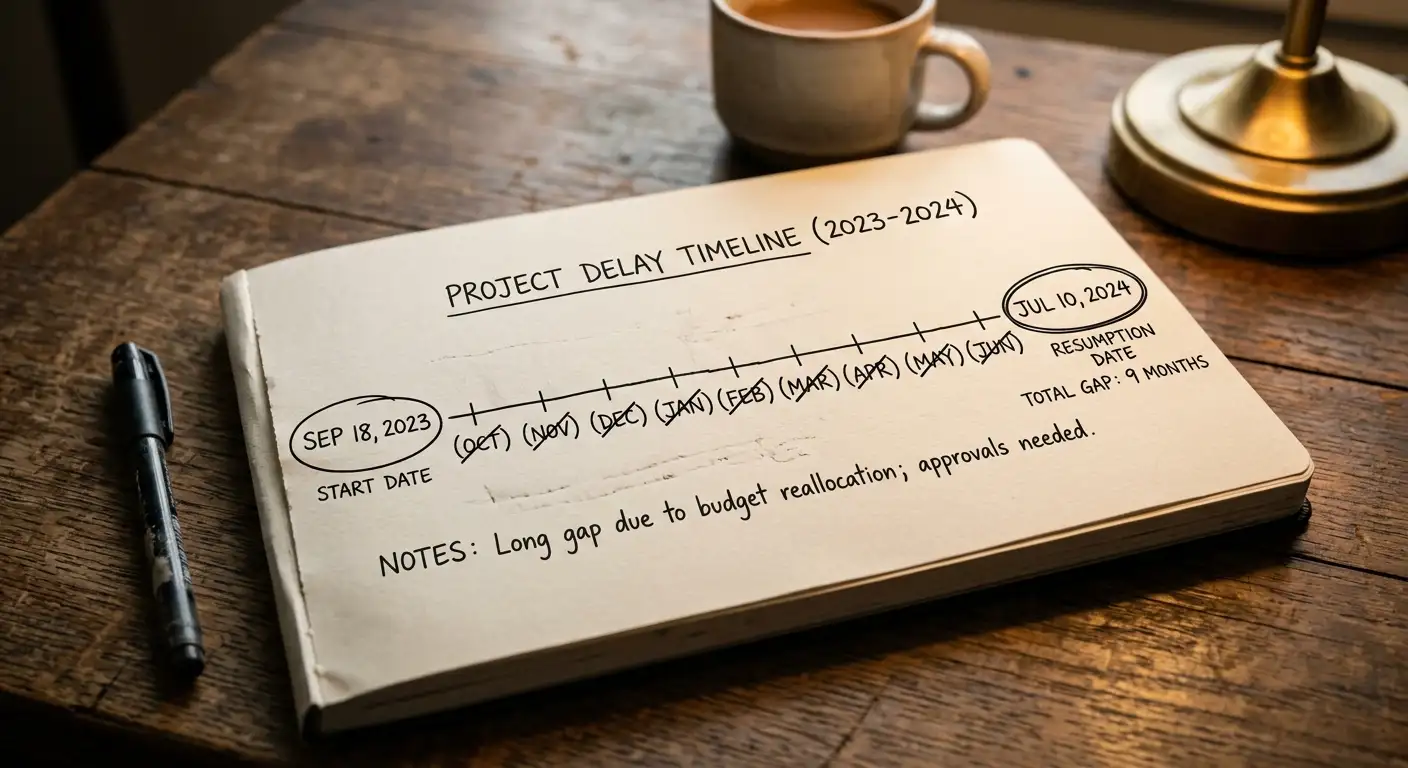 PROJECT DELAY TIMELINE (2023-2024)
SEP 18, 2023
START DATE
(OCT) (NOV) (DEC) (JAN) (FEB) (MAR) (APR) (MAY) (JUN)
JUL 10, 2024
RESUMPTION
DATE
TOTAL GAP: 9 MONTHS
NOTES: Long gap due to budget reallocation; approvals needed.